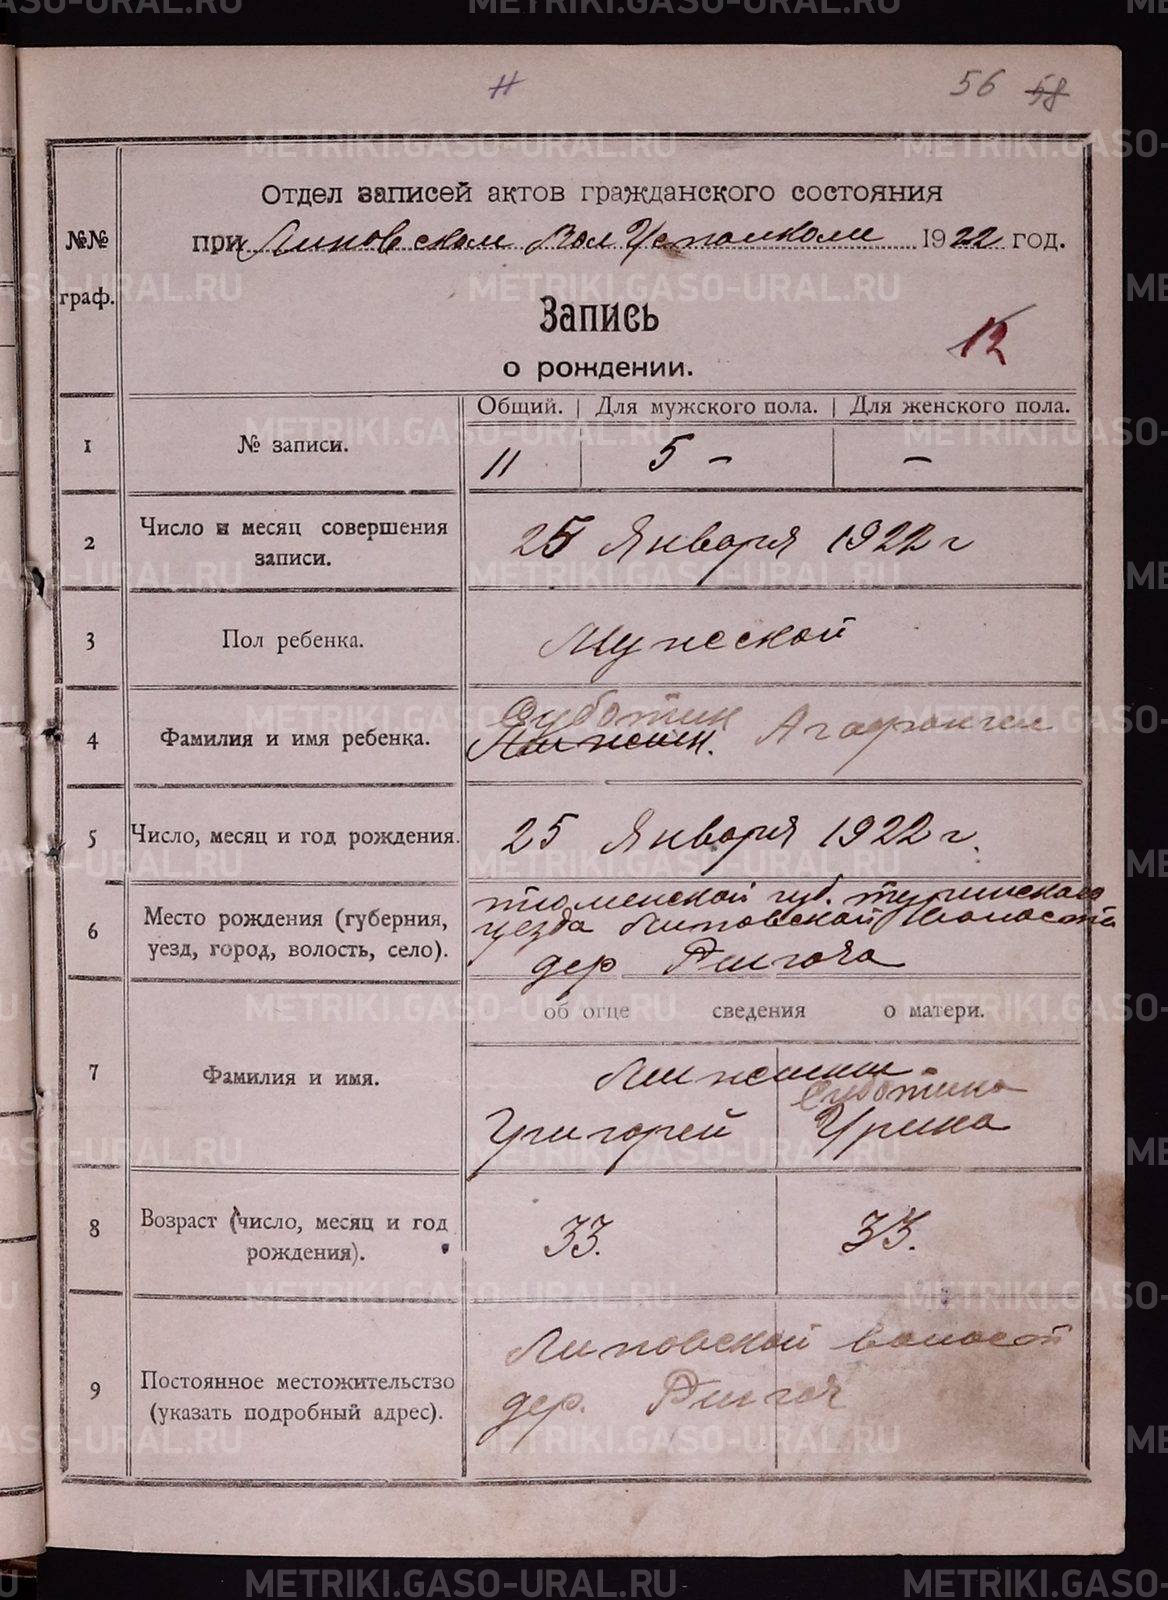 METRIKI.GASO-URAL.RU
11
56 58
Отдел записей актов гражданского состояния
№№ при Липовском Вол Исполкоме 1922 год.
граф.
Запись
12
о рождении.
Общий. Для мужского пола. Для женского пола.
1 № записи. 11 5 - -
2 Число и месяц совершения записи. 25 Января 1922 г
3 Пол ребенка. Мужеской
4 Фамилия и имя ребенка. Суботин Агафангел
5 Число, месяц и год рождения. 25 Января 1922 г.
6 Место рождения (губерния, уезд, город, волость, село).
тюменской губ. туринского
уезда Липовской волости
дер
об отце сведения о матери.
7 Фамилия и имя.
Суботина
Григорей Ирина
8 Возраст (число, месяц и год рождения). 33. 33.
9 Постоянное местожительство (указать подробный адрес).
Липовской волост
дер.